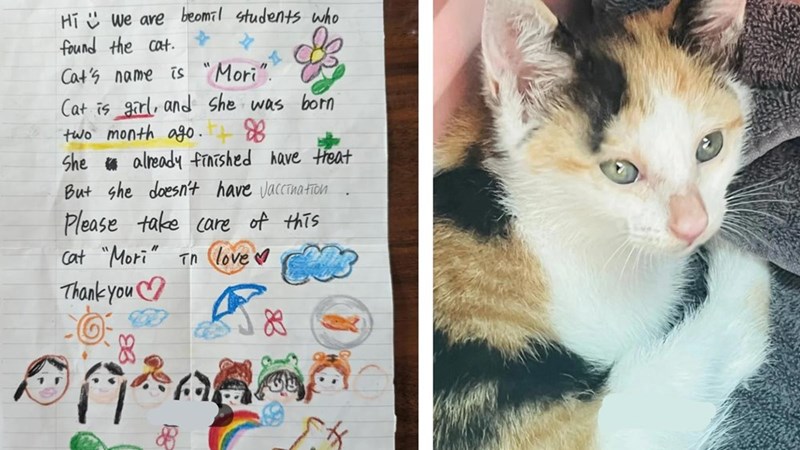 Hi We are beomil students who
found the cat.
Cat's name is "Mori".
Cat is girl, and she was born
two month ago.
She already finished have treat
But she doesn't have vaccination.
Please take care of this
cat "Mori" in love
Thank you